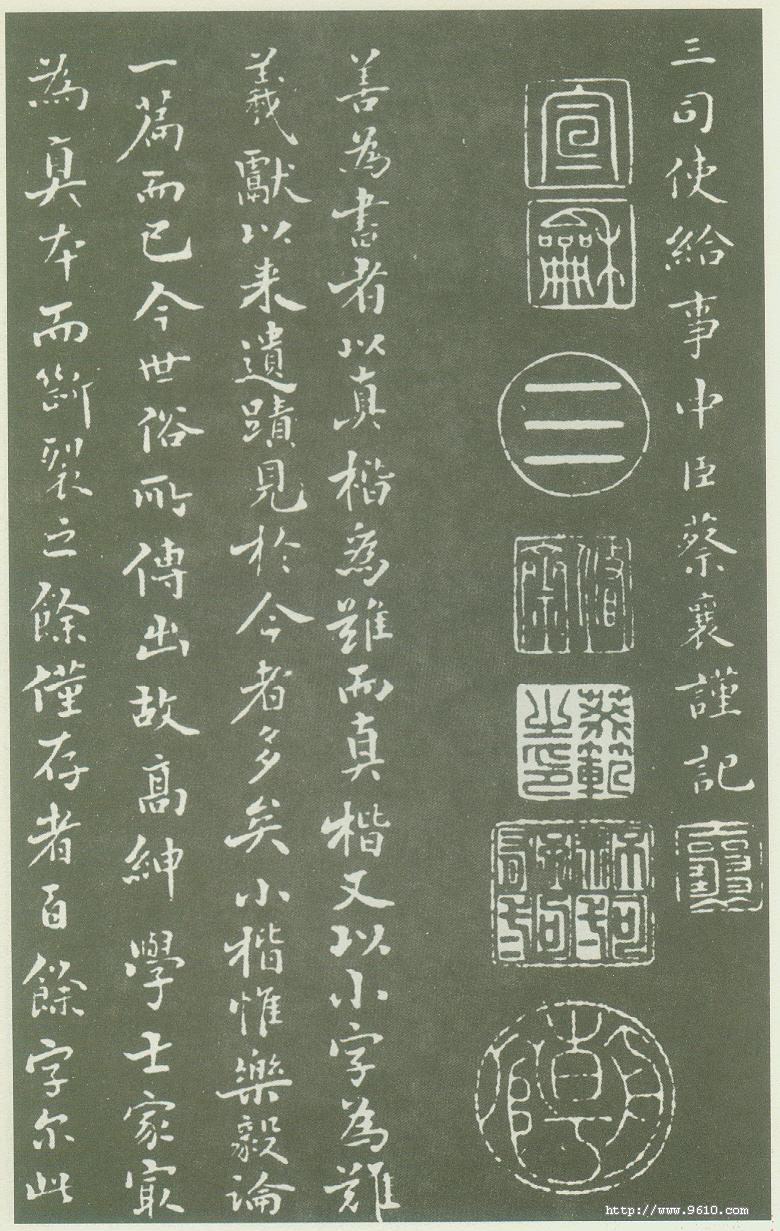 三司使給事中臣蔡襄謹記
宣
龢
三
蔡範
之印
善為書者以真楷為難而真楷又以小字為難
羲獻以來遺蹟見於今者多矣小楷惟樂毅論
一篇而已今世俗所傳出故高紳學士家冣
為真本而斷裂之餘僅存者百餘字尔此
http://www.9610.com